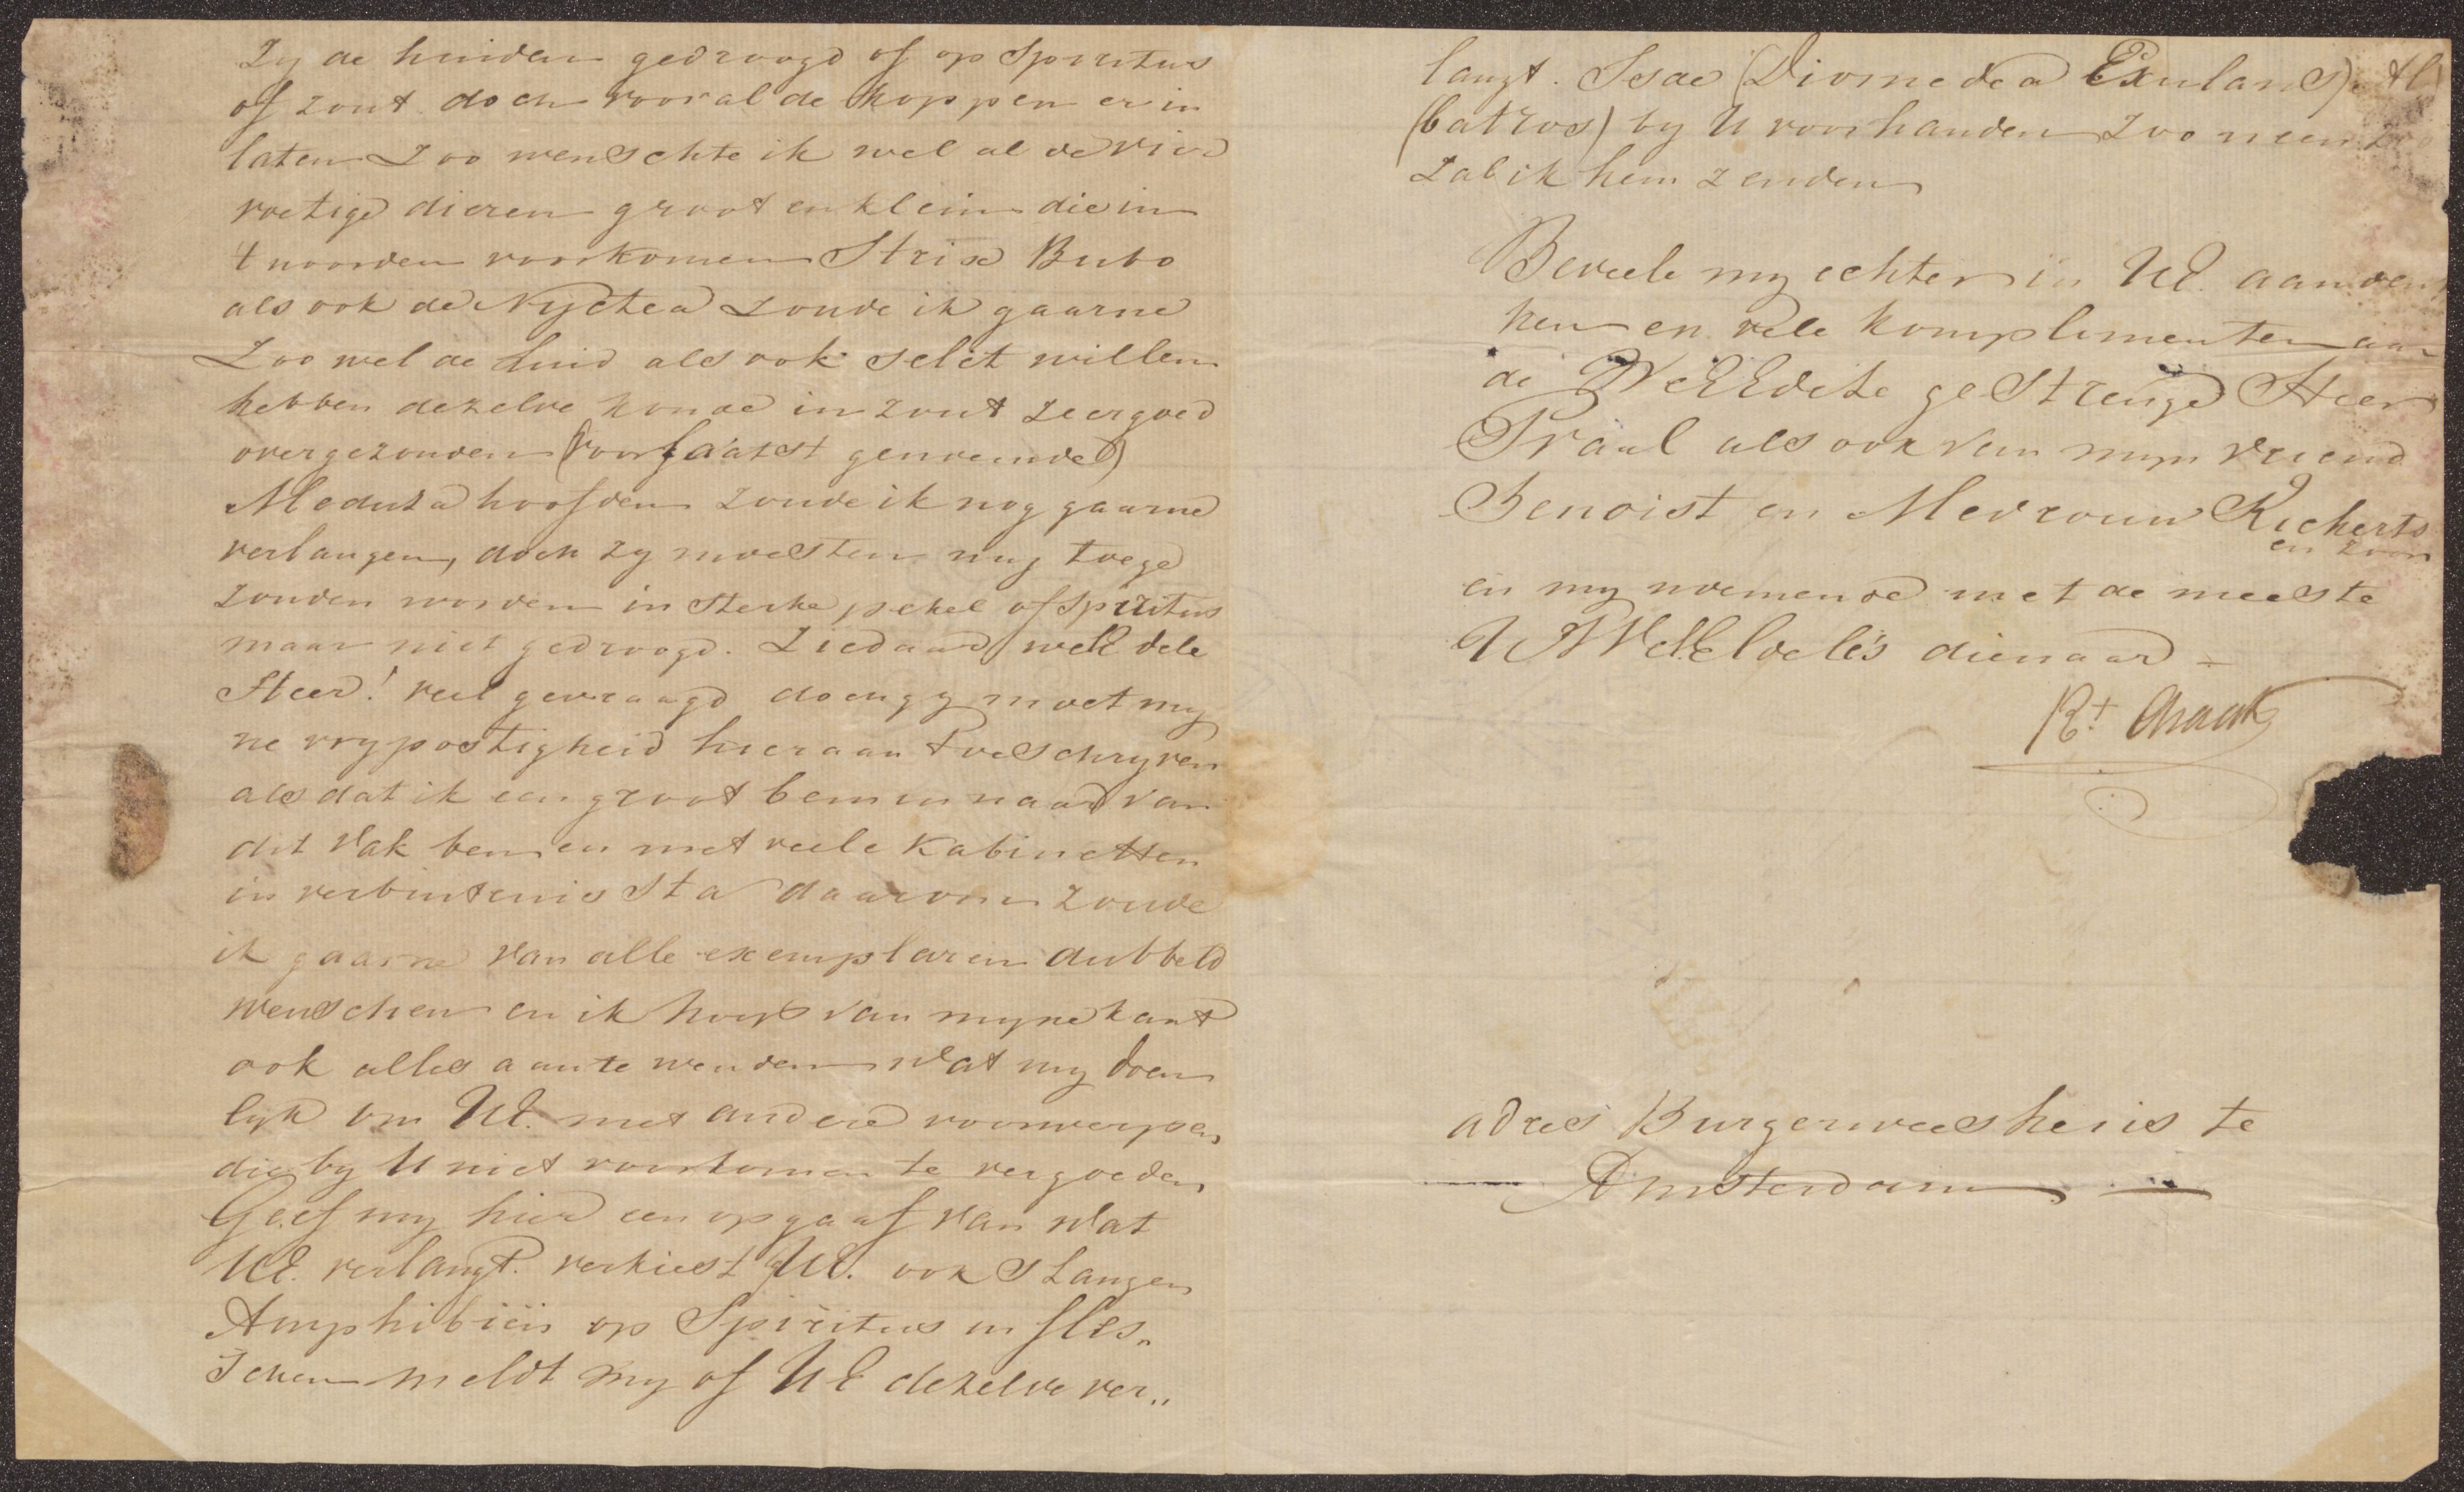 Zy de huiden gedroogd of op Spiritus
of zout doch vooral de koppen er in
laten Zoo wenschte ik wel al de vier
voetige dieren groot en klein die in
't noorden voorkomen Strix Bubo
als ook de Nyctea Zoude ik gaarne
Zoo wel de huid als ook selet willen
hebben dezelve konde in zout zeer goed
overgezonden (voor laatst genoemde)
Medusa hoofden zoude ik nog gaarne
verlangen, doch zy moesten my toege
zonden worden in sterke pekel of Spiritus
maar niet gedroogd. Ziedaar WelEdele
Heer! veel gevraagd doch gy moet my
ne vrypostigheid hieraan toeschryven
als dat ik een groot beminnaar van
dit vak ben en met veele Kabinetten
in verbintenis Sta daarom zoude
ik gaarne van alle exemplaren dubbeld
wenschen en ik hoop van myne kant
ook alles aan te wenden wat my doen
lyk om UE. met andere voorwerpen
die by U niet voorkomen te vergoeden
Geef my hier een opgaaf van wat
UE. verlangt. verkiest UE. ook Slangen
Amphibiën op Spiritus in fles„
schen meldt my of UE dezelve ver„
langt. Is de (Diomedea Exulans) Al
(batros) by U voorhanden zoo neen
zal ik hem zenden
Beveele my echter in UE. aanden
ken en vele komplimenten aan
de WelEdele gestrenge Heer
Praal als ook van myn vriend
Benoist en Mevrouw Richerts
en zoon
en my noemende met de meeste
UWelEdele's dienaar
Rt Draak
adres Burgerweeshuis te
Amsterdam